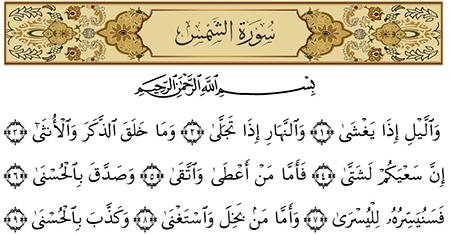 سُورَةُ الشَّمْسِ
بِسْمِ ٱللَّهِ ٱلرَّحْمَٰنِ ٱلرَّحِيمِ
وَٱلَّيْلِ إِذَا يَغْشَىٰ ﴿١﴾ وَٱلنَّهَارِ إِذَا تَجَلَّىٰ ﴿٢﴾ وَمَا خَلَقَ ٱلذَّكَرَ وَٱلْأُنثَىٰٓ ﴿٣﴾
إِنَّ سَعْيَكُمْ لَشَتَّىٰ ﴿٤﴾ فَأَمَّا مَنْ أَعْطَىٰ وَٱتَّقَىٰ ﴿٥﴾ وَصَدَّقَ بِٱلْحُسْنَىٰ ﴿٦﴾
فَسَنُيَسِّرُهُۥ لِلْيُسْرَىٰ ﴿٧﴾ وَأَمَّا مَنۢ بَخِلَ وَٱسْتَغْنَىٰ ﴿٨﴾ وَكَذَّبَ بِٱلْحُسْنَىٰ ﴿٩﴾